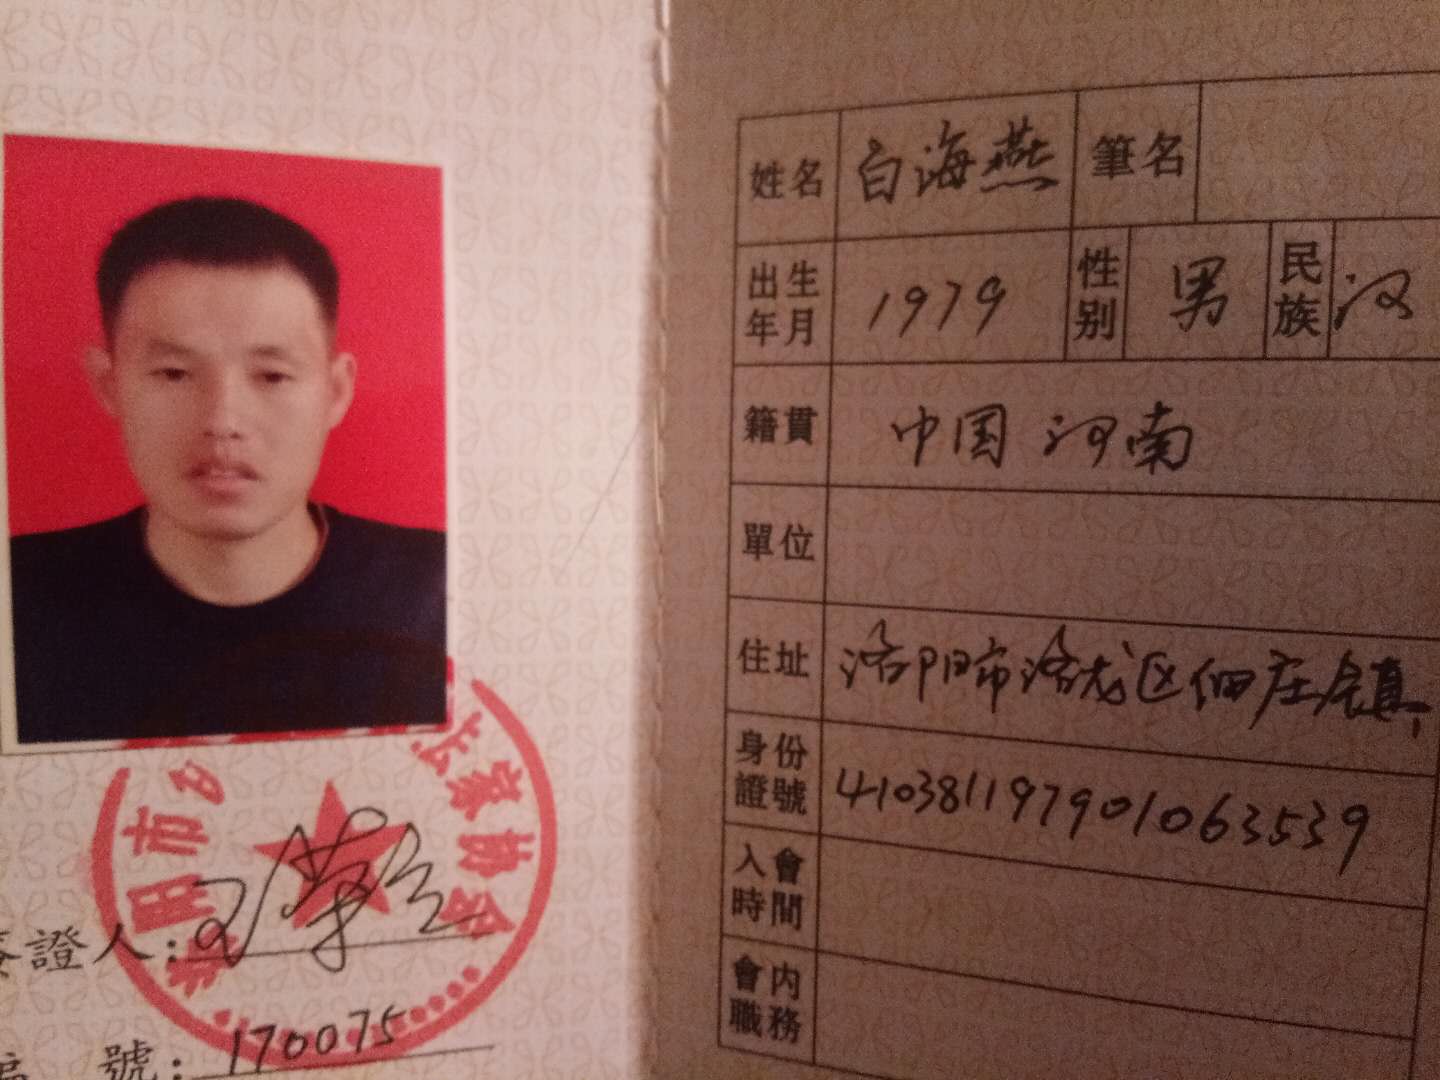 證人:
號: 170075
市
法家協會
姓名 白海燕 筆名
出生年月 1979 性别 男 民族 汉
籍貫 中国 河南
單位
住址 洛阳市洛龙区佃庄镇
身份證號 410381197901063539
入會時間
會内職務